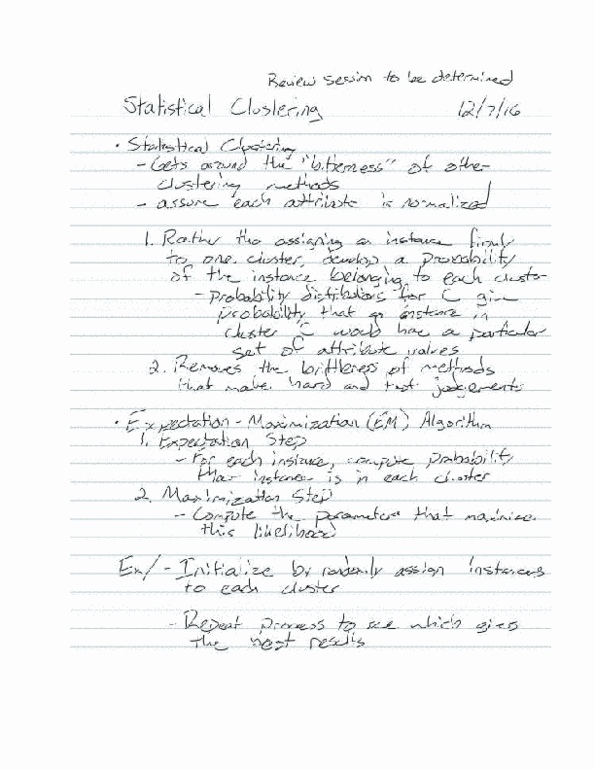 Review session to be determined
Statistical Clustering 12/7/16
• Statistical Clustering
- Gets around the "brittleness" of other
clustering methods
- assure each attribute is normalized
1. Rather than assigning an instance firmly
to one cluster, develop a probability
of the instance belonging to each cluster
- probability distributions for C give
probability that an instance in
cluster C would have a particular
set of attribute values
2. Removes the brittleness of methods
that make hard and fast judgements
• Expectation - Maximization (EM) Algorithm
1. Expectation Step
- For each instance, compute probability
that instance is in each cluster
2. Maximization Step
- Compute the parameters that maximize
this likelihood
Ex/ - Initialize by randomly assign instances
to each cluster
- Repeat process to see which gives
the best results